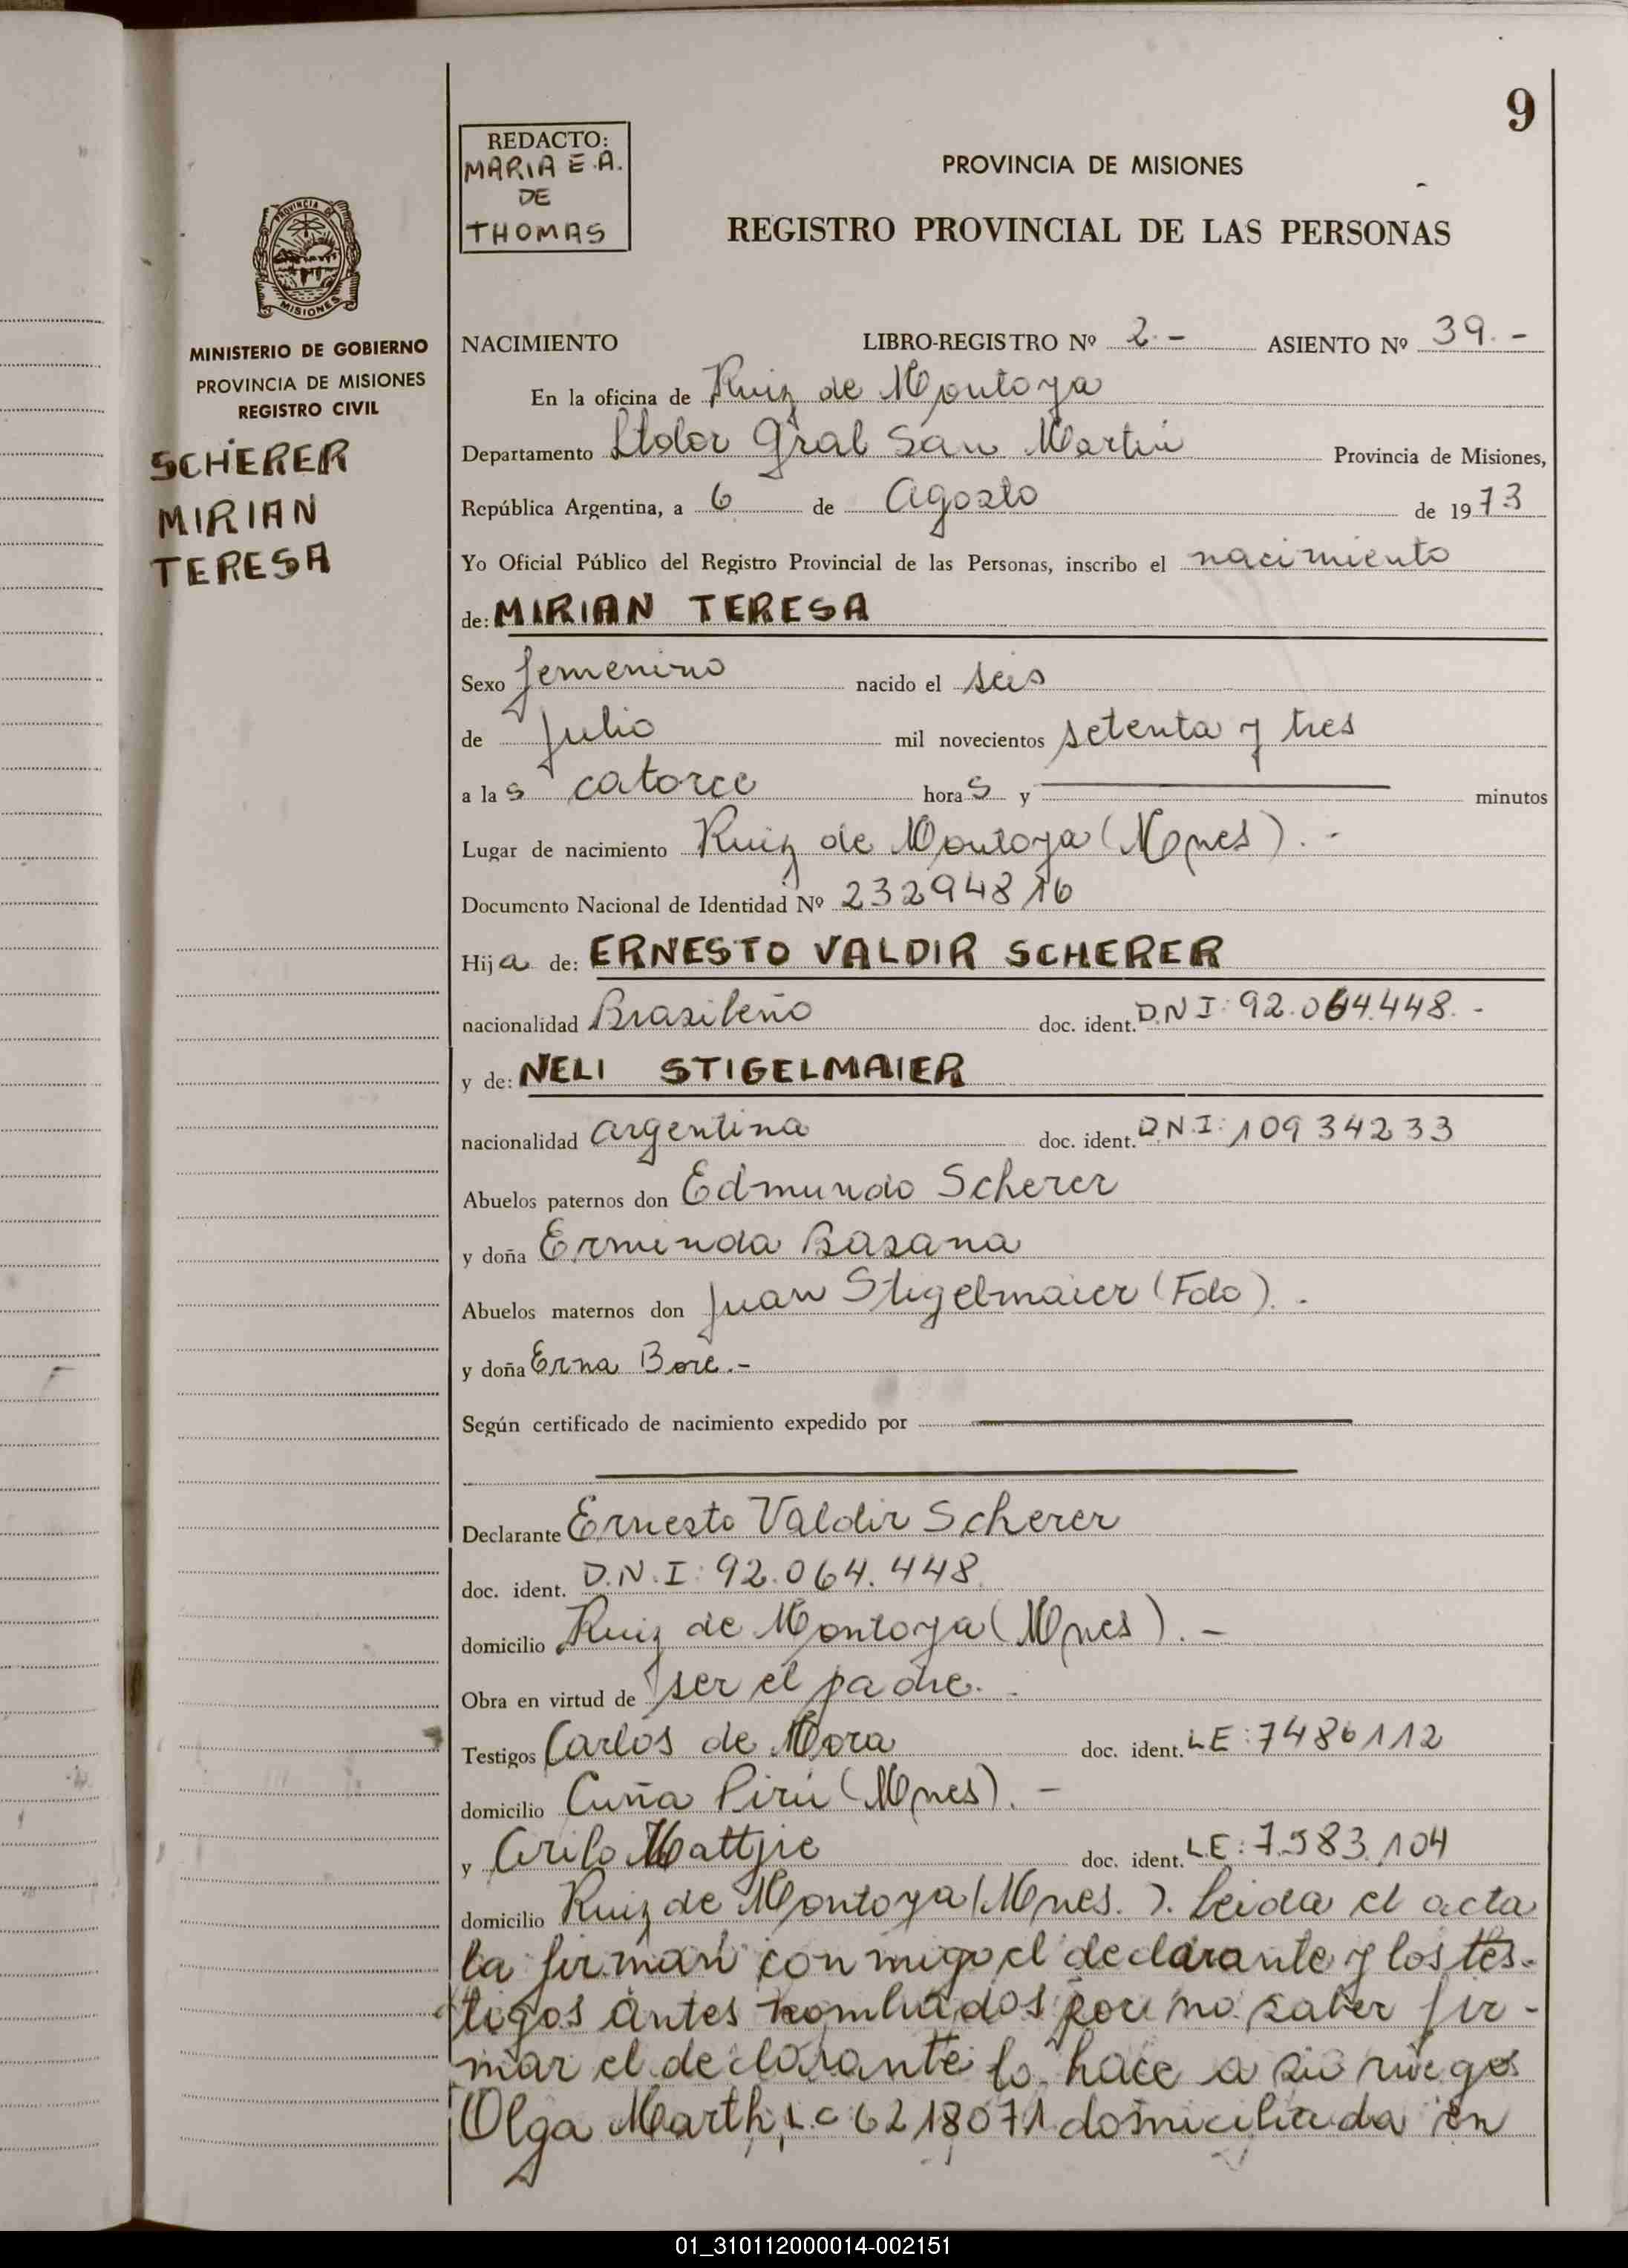 9
REDACTO:
MARIA E.A.
DE
THOMAS
PROVINCIA DE MISIONES
REGISTRO PROVINCIAL DE LAS PERSONAS
PROVINCIA DE
MISIONES
MINISTERIO DE GOBIERNO
PROVINCIA DE MISIONES
REGISTRO CIVIL
SCHERER
MIRIAN
TERESA
NACIMIENTO LIBRO-REGISTRO Nº 2.- ASIENTO Nº 39.-
En la oficina de Ruiz de Montoya
Departamento Ltdor Gral San Martin Provincia de Misiones,
República Argentina, a 6 de Agosto de 1973
Yo Oficial Público del Registro Provincial de las Personas, inscribo el nacimiento
de: MIRIAN TERESA
Sexo femenino nacido el seis
de Julio mil novecientos setenta y tres
a las catorce horas y minutos
Lugar de nacimiento Ruiz de Montoya (Mnes).-
Documento Nacional de Identidad Nº 23294816
Hija de: ERNESTO VALDIR SCHERER
nacionalidad Brasileño doc. ident. D.N.I: 92.064.448.-
y de: NELI STIGELMAIER
nacionalidad argentina doc. ident. D.N.I: 10934233
Abuelos paternos don Edmundo Scherer
y doña Erminda Basana
Abuelos maternos don Juan Stigelmaier (Fdo).-
y doña Erna Bore.-
Según certificado de nacimiento expedido por
Declarante Ernesto Valdir Scherer
doc. ident. D.N.I: 92.064.448
domicilio Ruiz de Montoya (Mnes).-
Obra en virtud de ser el padre.-
Testigos Carlos de Mora doc. ident. LE: 7486112
domicilio Cuña Pirú (Mnes).-
y Arilo Mattjie doc. ident. L.E: 7.583.104
domicilio Ruiz de Montoya (Mnes.). Leida el acta
la firman conmigo el declarante y los tes-
tigos antes nombrados por no saber fir-
mar el declarante lo hace a sio ruegos
Olga Marth, L.C 6218071 domiciliada en
01_310112000014-002151